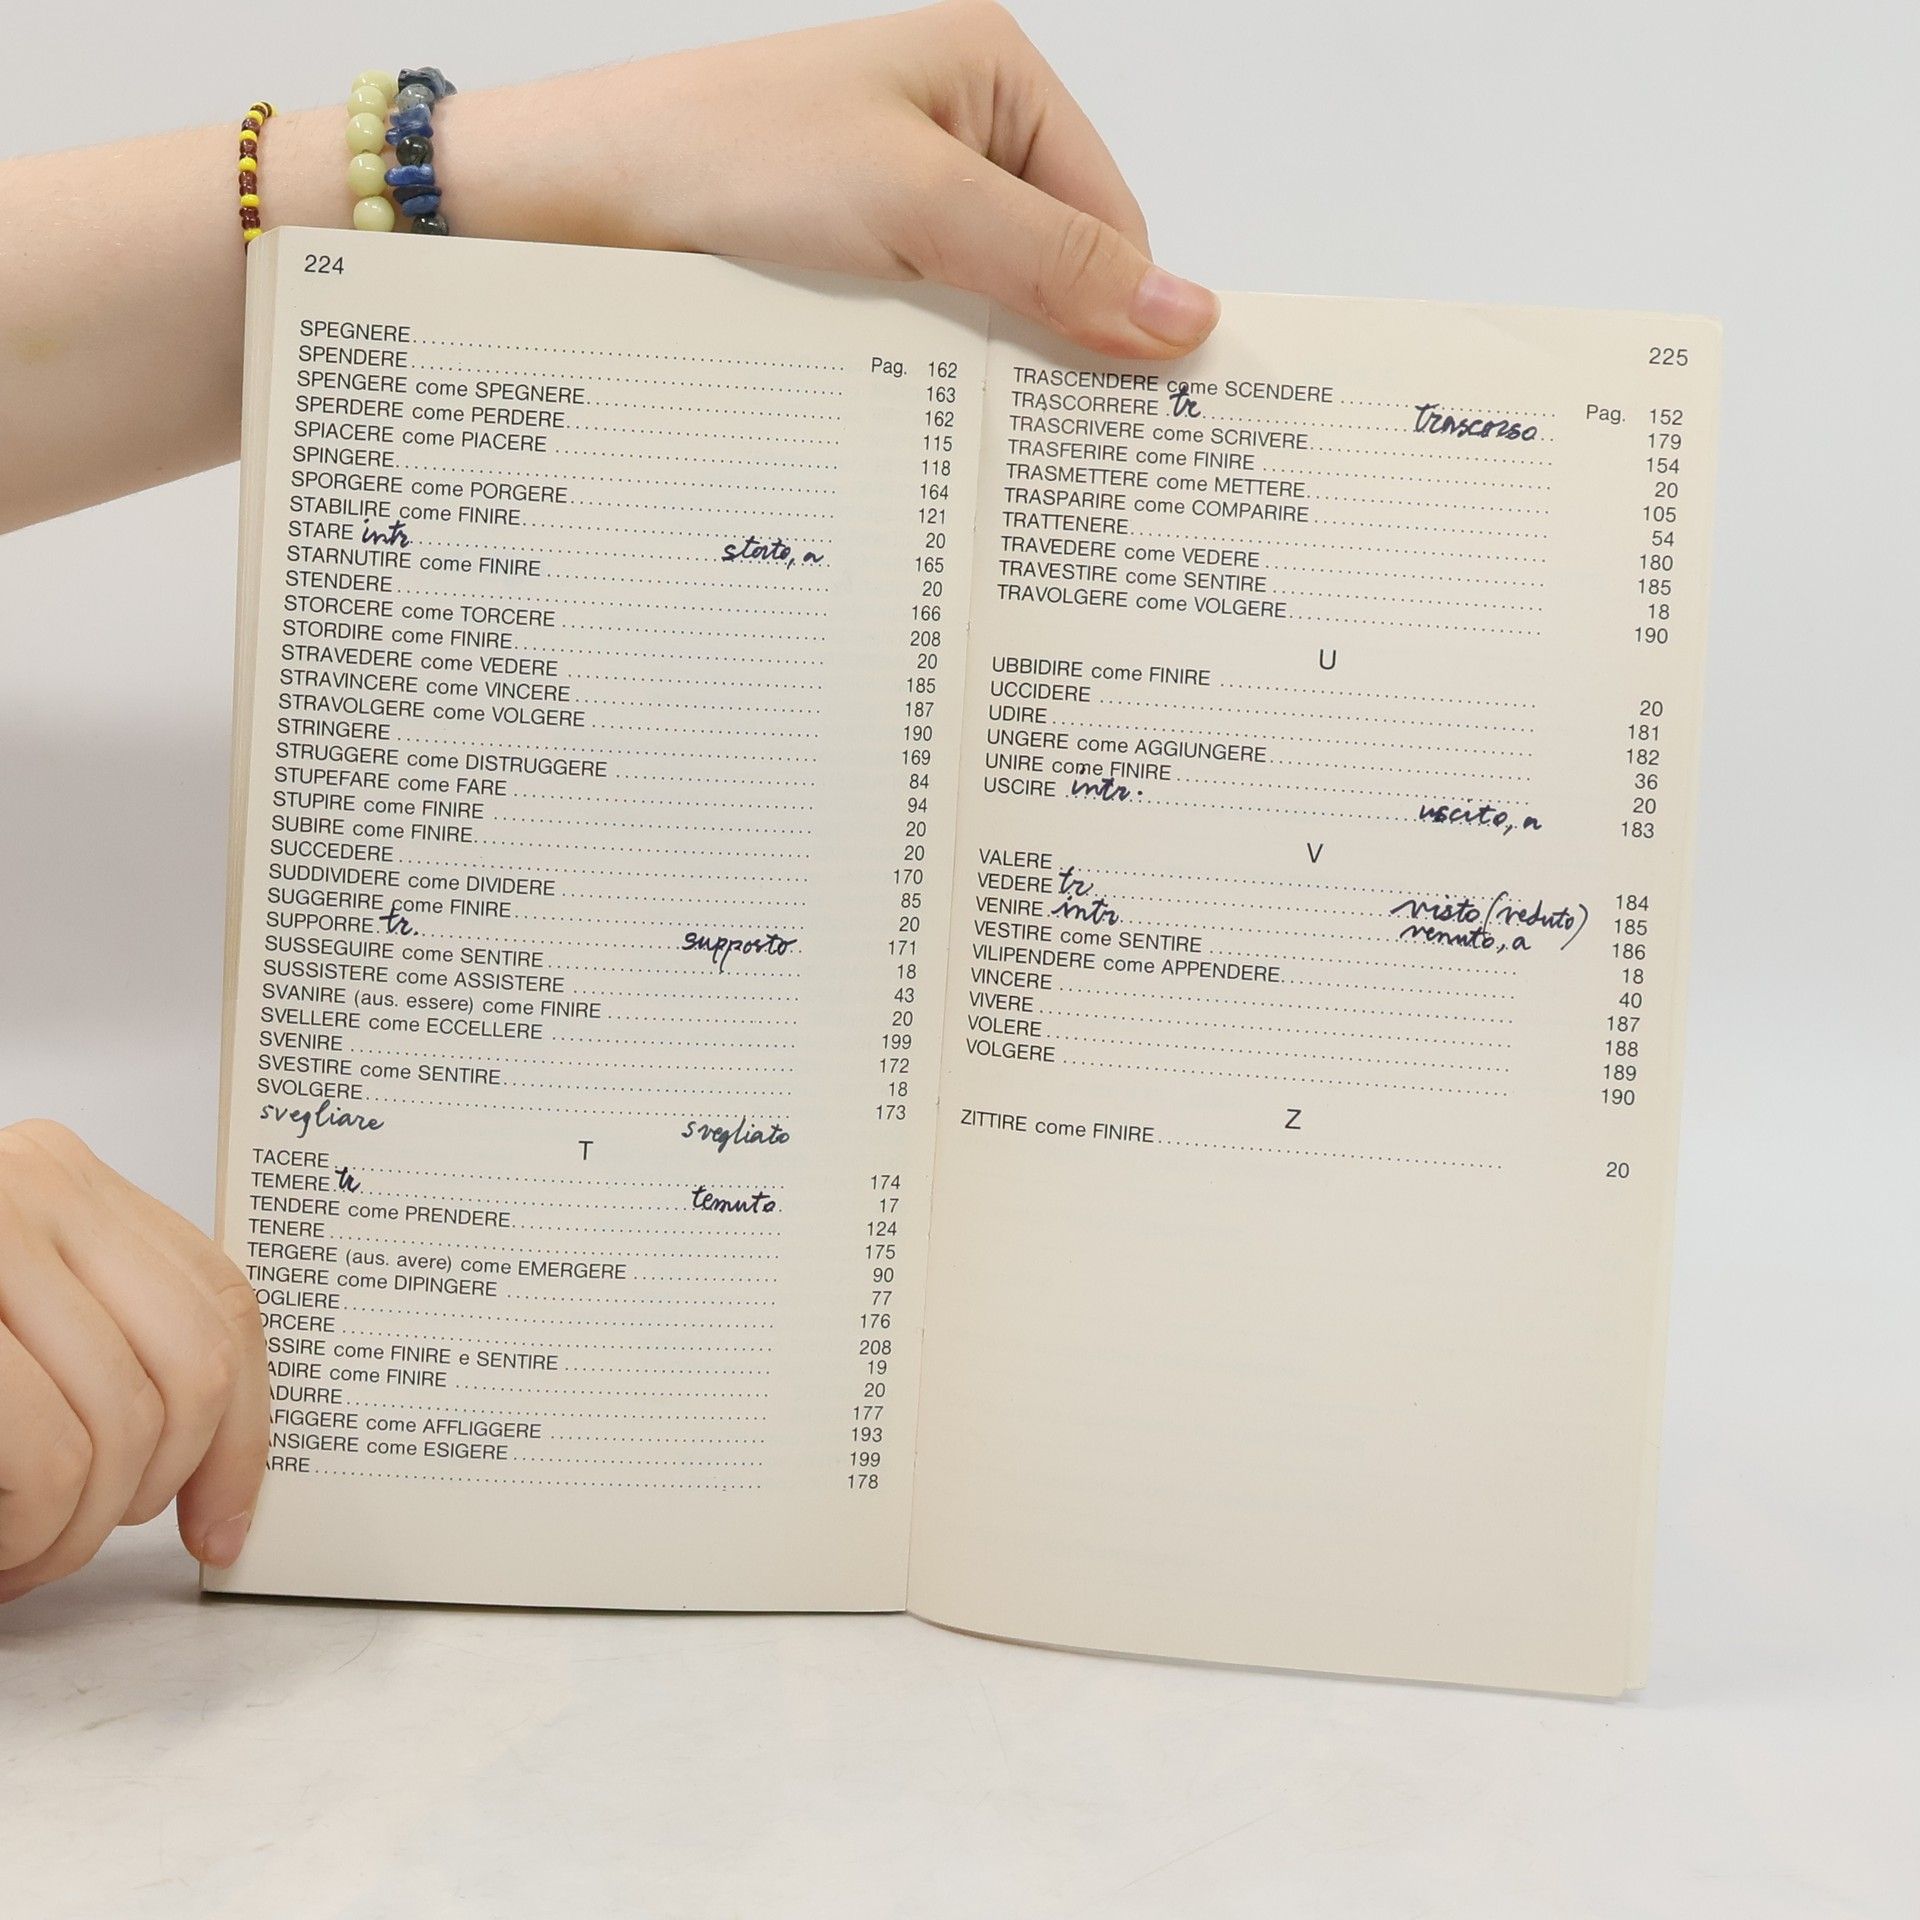 224
SPEGNERE Pag. 162
SPENDERE 163
SPENGERE come SPEGNERE 162
SPERDERE come PERDERE 115
SPIACERE come PIACERE 118
SPINGERE 164
SPORGERE come PORGERE 121
STABILIRE come FINIRE 20
STARE intr. stato, a 165
STARNUTIRE come FINIRE 20
STENDERE 166
STORCERE come TORCERE 208
STORDIRE come FINIRE 20
STRAVEDERE come VEDERE 185
STRAVINCERE come VINCERE 187
STRAVOLGERE come VOLGERE 190
STRINGERE 169
STRUGGERE come DISTRUGGERE 84
STUPEFARE come FARE 94
STUPIRE come FINIRE 20
SUBIRE come FINIRE 20
SUCCEDERE 170
SUDDIVIDERE come DIVIDERE 85
SUGGERIRE come FINIRE 20
SUPPORRE tr. supposto 171
SUSSEGUIRE come SENTIRE 18
SUSSISTERE come ASSISTERE 43
SVANIRE (aus. essere) come FINIRE 20
SVELLERE come ECCELLERE 199
SVENIRE 172
SVESTIRE come SENTIRE 18
SVOLGERE 173
svegliare svegliato
T
TACERE 174
TEMERE tr temuto 17
TENDERE come PRENDERE 124
TENERE 175
TERGERE (aus. avere) come EMERGERE 90
TINGERE come DIPINGERE 77
OGLIERE 176
ORCERE 208
OSSIRE come FINIRE e SENTIRE 19
ADIRE come FINIRE 20
ADURRE 177
AFIGGERE come AFFLIGGERE 193
ANSIGERE come ESIGERE 199
ARRE 178
225
TRASCENDERE come SCENDERE Pag. 152
TRASCORRERE tr trascorso 179
TRASCRIVERE come SCRIVERE 154
TRASFERIRE come FINIRE 20
TRASMETTERE come METTERE 105
TRASPARIRE come COMPARIRE 54
TRATTENERE 180
TRAVEDERE come VEDERE 185
TRAVESTIRE come SENTIRE 18
TRAVOLGERE come VOLGERE 190
U
UBBIDIRE come FINIRE 20
UCCIDERE 181
UDIRE 182
UNGERE come AGGIUNGERE 36
UNIRE come FINIRE 20
USCIRE intr. uscito, a 183
V
VALERE 184
VEDERE tr visto (veduto) 185
VENIRE intr. venuto, a 186
VESTIRE come SENTIRE 18
VILIPENDERE come APPENDERE 40
VINCERE 187
VIVERE 188
VOLERE 189
VOLGERE 190
Z
ZITTIRE come FINIRE 20